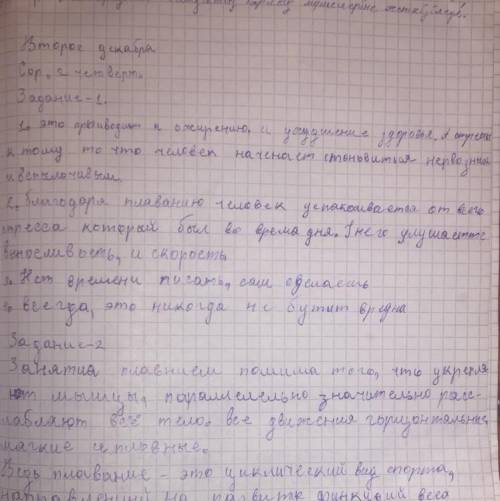 мүшелеріне жеткізілуі.
Второе декабря
Сор. 2 четверть.
Задание-1.
1. это приводит к ожирению и ухудшение здоровья. А стресс
к тому то что человек начнает становиться нервозным
и вспылочивым.
2. благодаря плаванию человек успакоивается от всего
стресса который был во время дня. У него улушается
выносливость, и скорость.
3. Нет времени писать, сам сделаешь
4. всегда, это никогда не бутит вредна
Задание-2
Занятиа плавнием помима того, что укрепля
ют мышцы, параллельно значительно расс-
лабляют всё тело. все движения горизонтальные,
мягкие и плавные.
Ведь плавание - это циклический вид спорта,
направлений на развитие функций веса